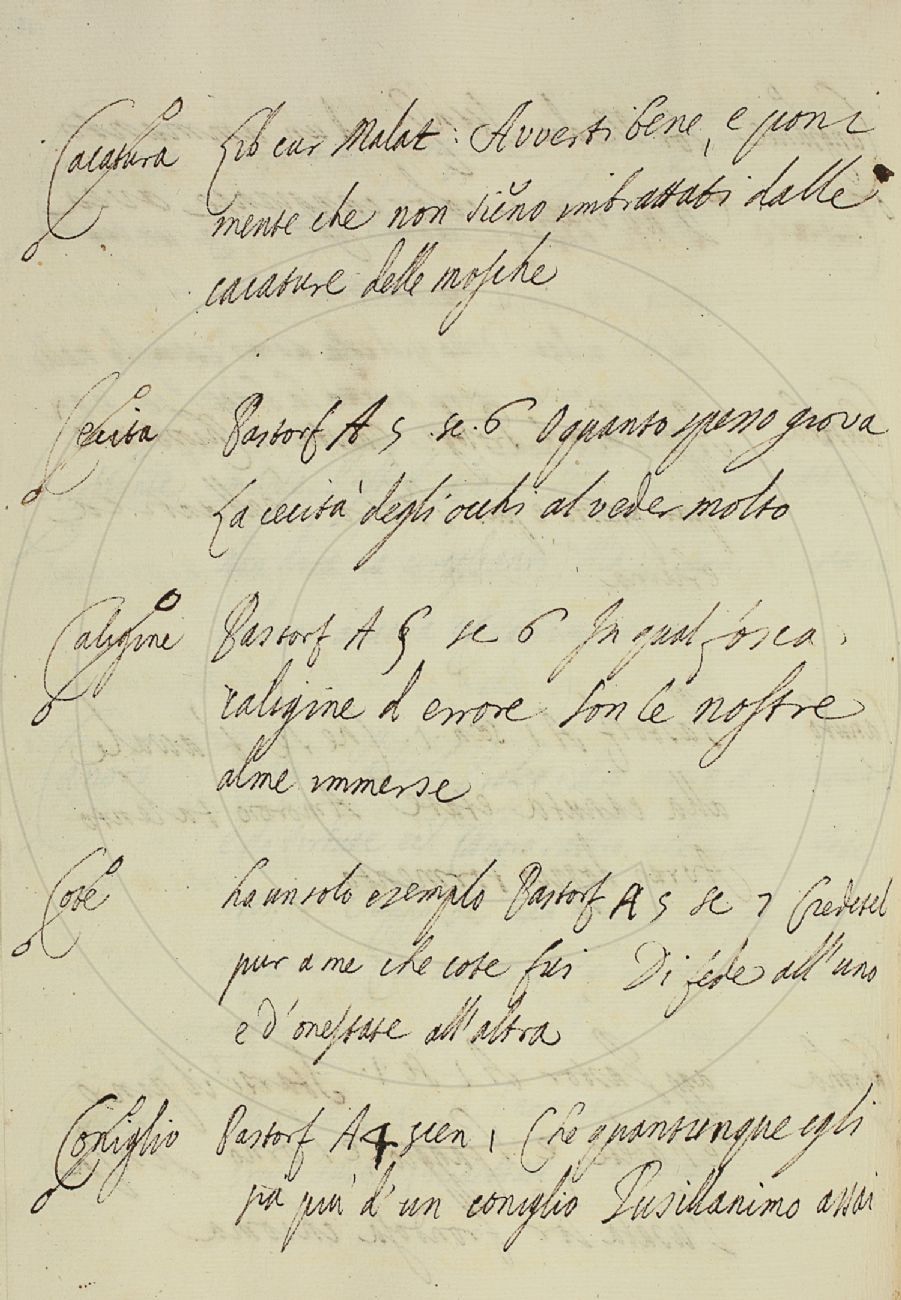 Cacatura Lib cur Malat: Avverti bene, e pon
mente che non sieno imbrattati dalle
cacature delle mosche
Cecita Pastorf A 5 sc. 6 O quanto spesso giova
La cecità degli occhi al veder molto
Caligine Pastorf A 5 sc 6 In qual fosca
caligine d errore son le nostre
alme immerse
Cote ha un solo esempio Pastorf A 5 sc 7 Credetel
pur a me che cote fui Di fede all'uno
e d'onestate all'altra
Coniglio Pastorf A 4 scen 1 Che quantunque egli
sia più d'un coniglio Pusillanimo assai